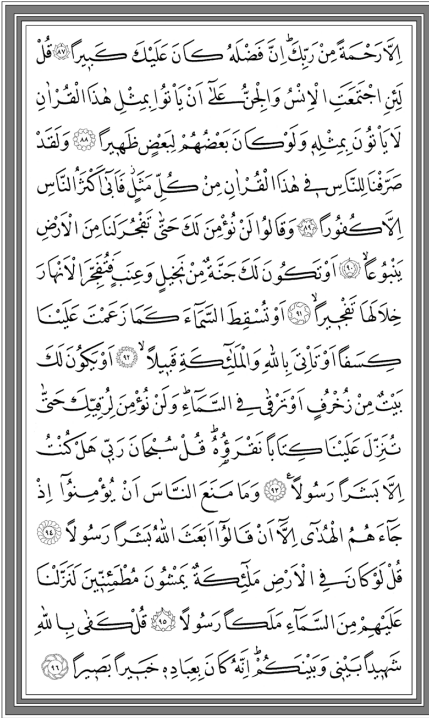 اِلَّا رَحْمَةً مِنْ رَبِّكَۜ اِنَّ فَضْلَهُ كَانَ عَلَيْكَ كَبٖيرًا ﴿٨٧﴾ قُلْ
لَئِنِ اجْتَمَعَتِ الْاِنْسُ وَالْجِنُّ عَلٰٓى اَنْ يَأْتُوا بِمِثْلِ هٰذَا الْقُرْاٰنِ
لَا يَأْتُونَ بِمِثْلِهٖ وَلَوْ كَانَ بَعْضُهُمْ لِبَعْضٍ ظَهٖيرًا ﴿٨٨﴾ وَلَقَدْ
صَرَّفْنَا لِلنَّاسِ فٖي هٰذَا الْقُرْاٰنِ مِنْ كُلِّ مَثَلٍۘ فَاَبٰٓى اَكْثَرُ النَّاسِ
اِلَّا كُفُورًا ﴿٨٩﴾ وَقَالُوا لَنْ نُؤْمِنَ لَكَ حَتّٰى تَفْجُرَ لَنَا مِنَ الْاَرْضِ
يَنْبُوعًاۙ ﴿٩٠﴾ اَوْ تَكُونَ لَكَ جَنَّةٌ مِنْ نَخٖيلٍ وَعِنَبٍ فَتُفَجِّرَ الْاَنْهَارَ
خِلَالَهَا تَفْجٖيرًاۙ ﴿٩١﴾ اَوْ تُسْقِطَ السَّمَٓاءَ كَمَا زَعَمْتَ عَلَيْنَا
كِسَفًا اَوْ تَأْتِيَ بِاللّٰهِ وَالْمَلٰٓئِكَةِ قَبٖيلًاۙ ﴿٩٢﴾ اَوْ يَكُونَ لَكَ
بَيْتٌ مِنْ زُخْرُفٍ اَوْ تَرْقٰى فِي السَّمَٓاءِۜ وَلَنْ نُؤْمِنَ لِرُقِيِّكَ حَتّٰى
تُنَزِّلَ عَلَيْنَا كِتَابًا نَقْرَؤُ۬هُۜ قُلْ سُبْحَانَ رَبّٖي هَلْ كُنْتُ
اِلَّا بَشَرًا رَسُولًا۟ ﴿٩٣﴾ وَمَا مَنَعَ النَّاسَ اَنْ يُؤْمِنُٓوا اِذْ
جَٓاءَهُمُ الْهُدٰٓى اِلَّٓا اَنْ قَالُٓوا اَبَعَثَ اللّٰهُ بَشَرًا رَسُولًا ﴿٩٤﴾
قُلْ لَوْ كَانَ فِي الْاَرْضِ مَلٰٓئِكَةٌ يَمْشُونَ مُطْمَئِنّٖينَ لَنَزَّلْنَا
عَلَيْهِمْ مِنَ السَّمَٓاءِ مَلَكًا رَسُولًا ﴿٩٥﴾ قُلْ كَفٰى بِاللّٰهِ
شَهٖيدًا بَيْنٖي وَبَيْنَكُمْۜ اِنَّهُ كَانَ بِعِبَادِهٖ خَبٖيرًا بَصٖيرًا ﴿٩٦﴾